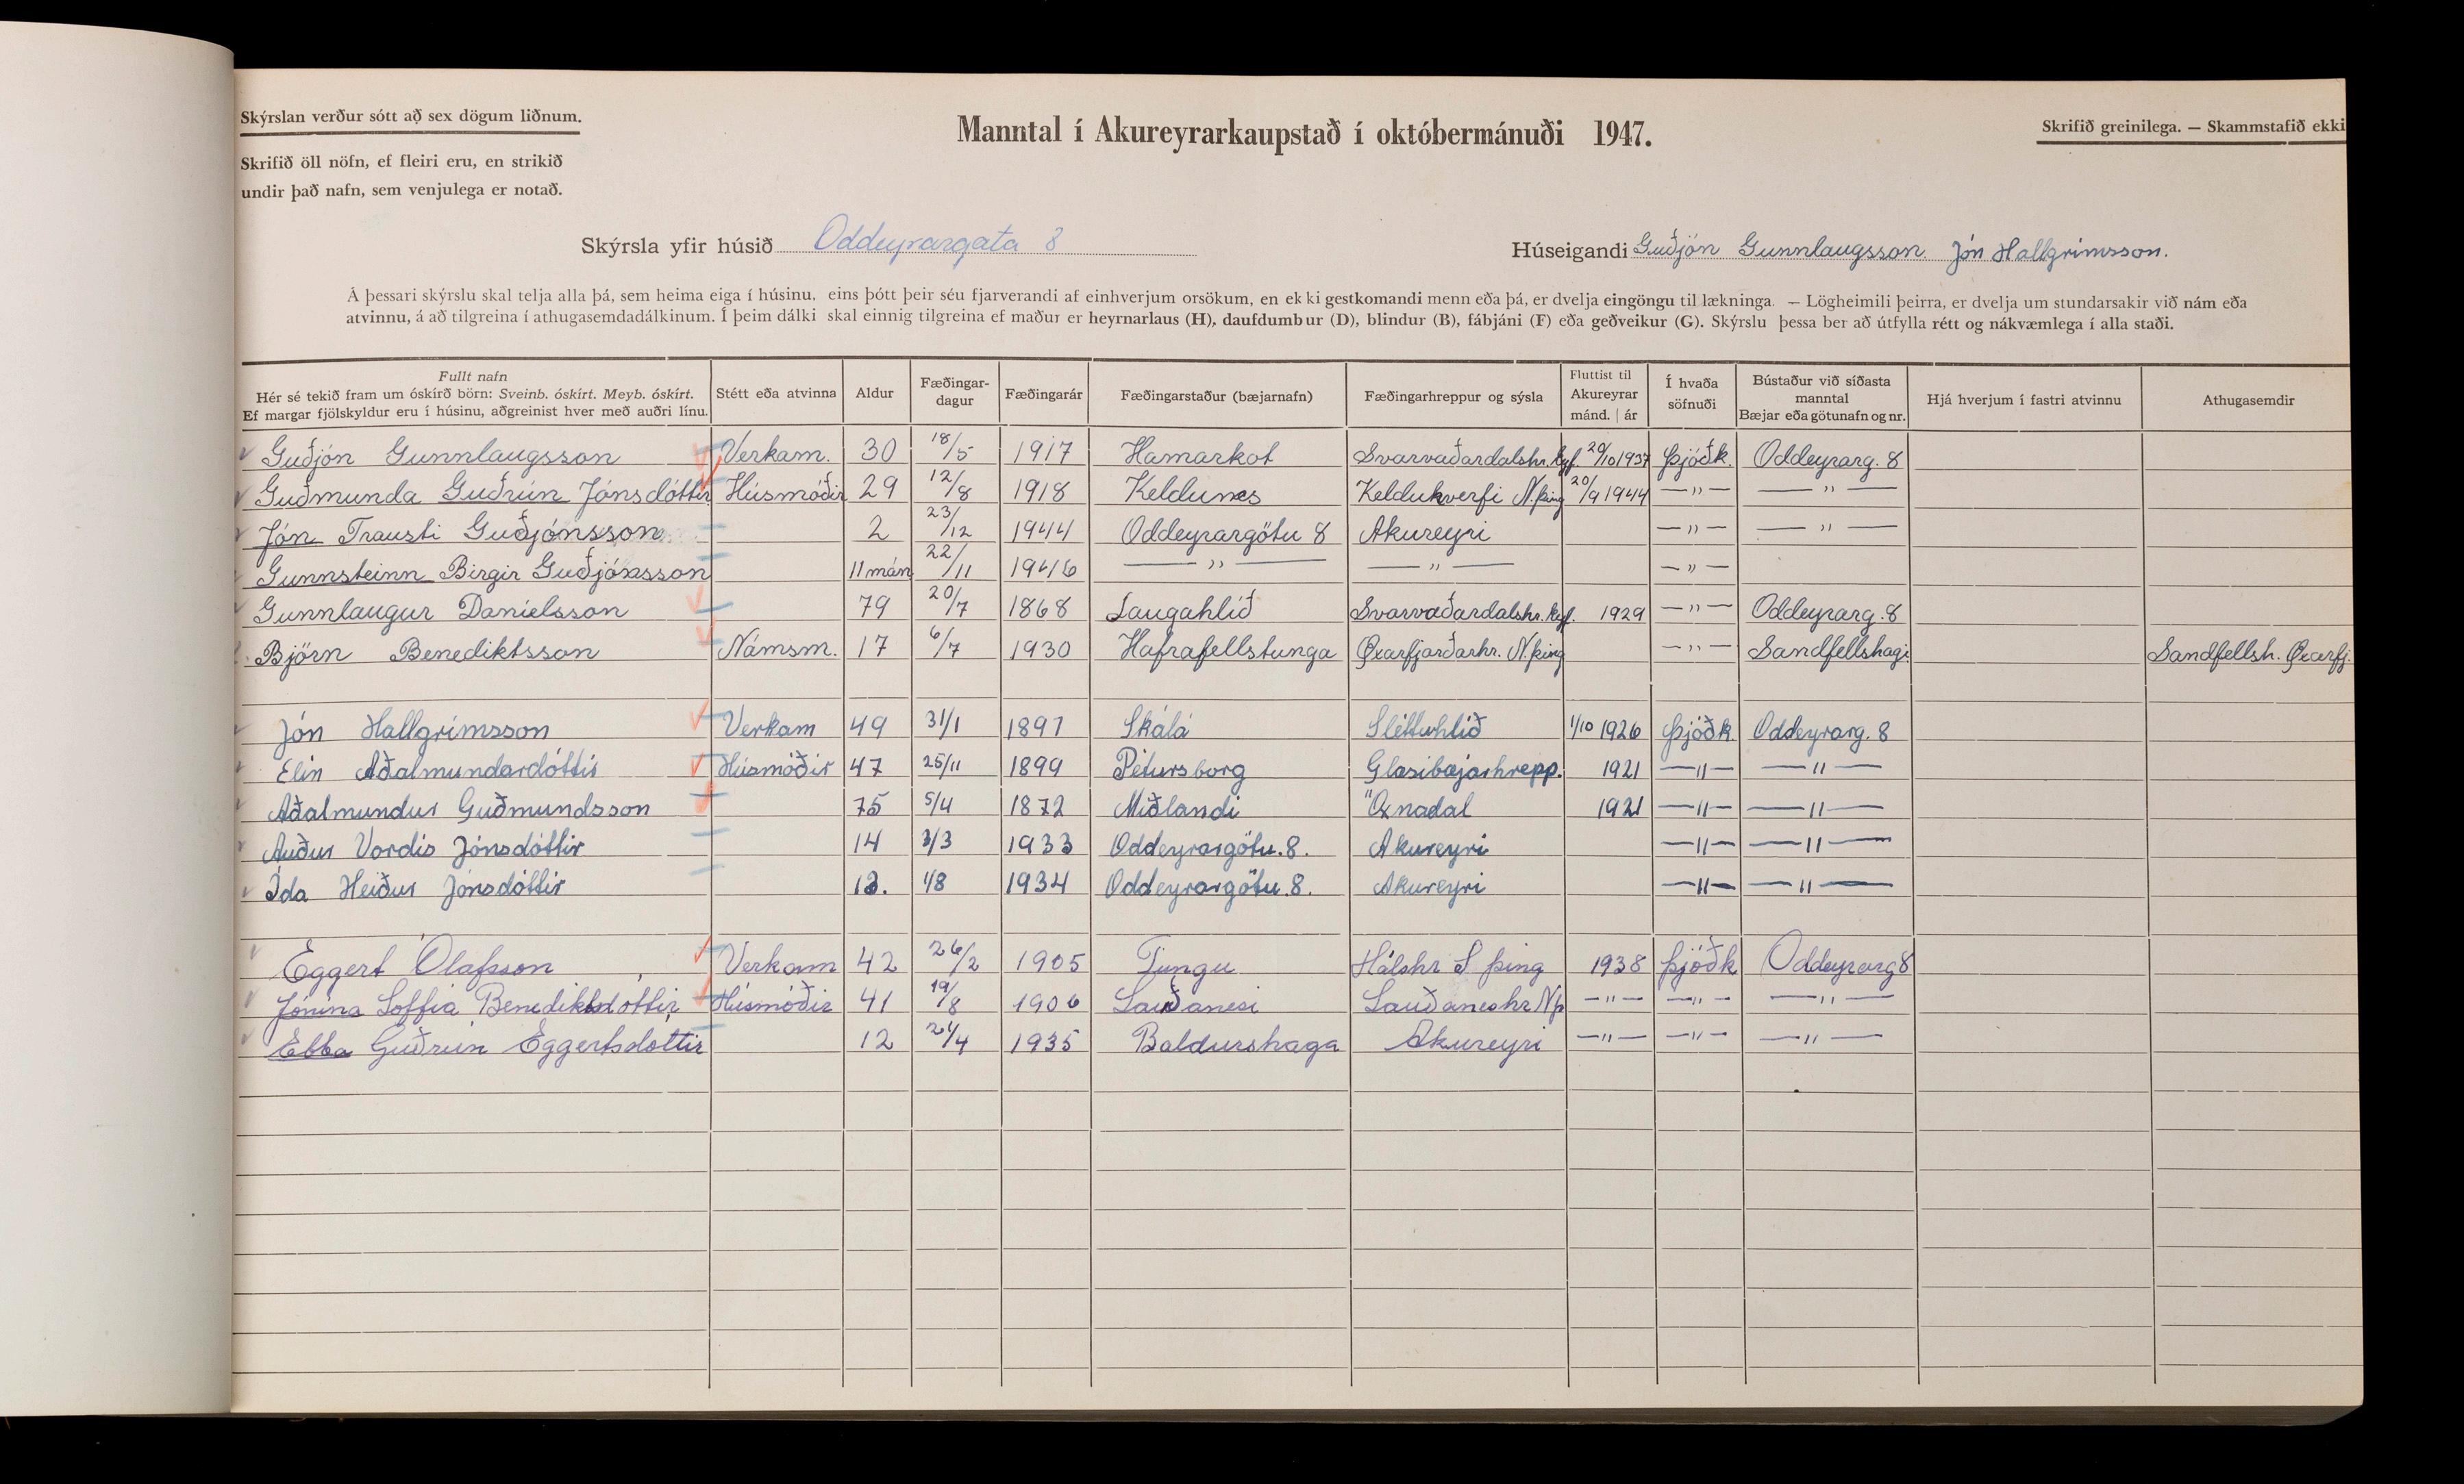 Skýrslan verður sótt að sex dögum liðnum.
Manntal í Akureyrarkaupstað í októbermánuði 1947.
Skrifið greinilega. — Skammstafið ekki
Skrifið öll nöfn, ef fleiri eru, en strikið
undir það nafn, sem venjulega er notað.
Skýrsla yfir húsið Oddeyrargata 8
Húseigandi Guðjón Gunnlaugsson. Jón Hallgrímsson.
Á þessari skýrslu skal telja alla þá, sem heima eiga í húsinu, eins þótt þeir séu fjarverandi af einhverjum orsökum, en ekki gestkomandi menn eða þá, er dvelja eingöngu til lækninga. — Lögheimili þeirra, er dvelja um stundarsakir við nám eða
atvinnu, á að tilgreina í athugasemdadálkinum. Í þeim dálki skal einnig tilgreina ef maður er heyrnarlaus (H), daufdumbur (D), blindur (B), fábjáni (F) eða geðveikur (G). Skýrslu þessa ber að útfylla rétt og nákvæmlega í alla staði.
Fullt nafn
Hér sé tekið fram um óskírð börn: Sveinb. óskírt. Meyb. óskírt.
Ef margar fjölskyldur eru í húsinu, aðgreinist hver með auðri línu.
Stétt eða atvinna
Aldur
Fæðingar-
dagur
Fæðingarár
Fæðingarstaður (bæjarnafn)
Fæðingarhreppur og sýsla
Fluttist til
Akureyrar
mánd. | ár
Í hvaða
söfnuði
Bústaður við síðasta
manntal
Bæjar eða götunafn og nr.
Hjá hverjum í fastri atvinnu
Athugasemdir
Guðjón Gunnlaugsson Verkam. 30 18/5 1917 Hamarkot Svarvaðardalshr. Eyf. 20/10 1937 Þjóðk. Oddeyrarg. 8
Guðmunda Guðrún Jónsdóttir Húsmóðir 29 12/8 1918 Keldunes Keldukverfi N.þing 20/9 1944 — " — — " —
Jón Trausti Guðjónsson 2 23/12 1944 Oddeyrargötu 8 Akureyri — " — — " —
Gunnsteinn Birgir Guðjónsson 11 mán 22/11 1946 — " — — " — — " —
Gunnlaugur Daníelsson 79 20/7 1868 Laugahlíð Svarvaðardalshr. Eyf. 1929 — " — Oddeyrarg. 8
Björn Benediktsson Námsm. 17 6/7 1930 Hafrafellstunga Öxarfjarðarhr. N.þing — " — Sandfellshagi Sandfellsh. Öxarfj.
Jón Hallgrímsson Verkam 49 31/1 1897 Skálá Sléttuhlíð 1/10 1926 Þjóðk. Oddeyrarg. 8
Elín Aðalmundardóttir Húsmóðir 47 25/11 1899 Pétursborg Glæsibæjarhrepp. 1921 — " — — " —
Aðalmundur Guðmundsson 75 5/4 1872 Miðlandi Öxnadal 1921 — " — — " —
Auður Vordís Jónsdóttir 14 3/3 1933 Oddeyrargötu. 8. Akureyri — " — — " —
Ída Heiður Jónsdóttir 13. 1/8 1934 Oddeyrargötu. 8. Akureyri — " — — " —
Eggert Ólafsson Verkam 42 26/2 1905 Tungu Hálshr S þing 1938 Þjóðk Oddeyrarg 8
Jónína Soffía Benediktsdóttir Húsmóðir 41 19/8 1906 Lauðanesi Lauðaneshr Nþ — " — — " — — " —
Ebba Guðrún Eggertsdóttir 12 21/4 1935 Baldurshaga Akureyri — " — — " — — " —